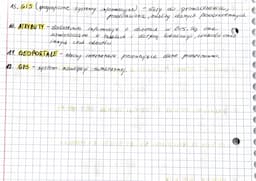 15. GIS (geograficzne systemy informacyjne) - służy do gromadzenia,
przetwarzania, analizy danych przestrzennych
16. ATRYBUTY - dodatkowe informacje o obiektach w GIS. Są one
w tabelach i dotyczą lokalizacji,
cech obiektów
17. GEOPORTALE - strony internetowe prezentujące dane przestrzenne.
18. GPS - system nawigacji satelitarnej.